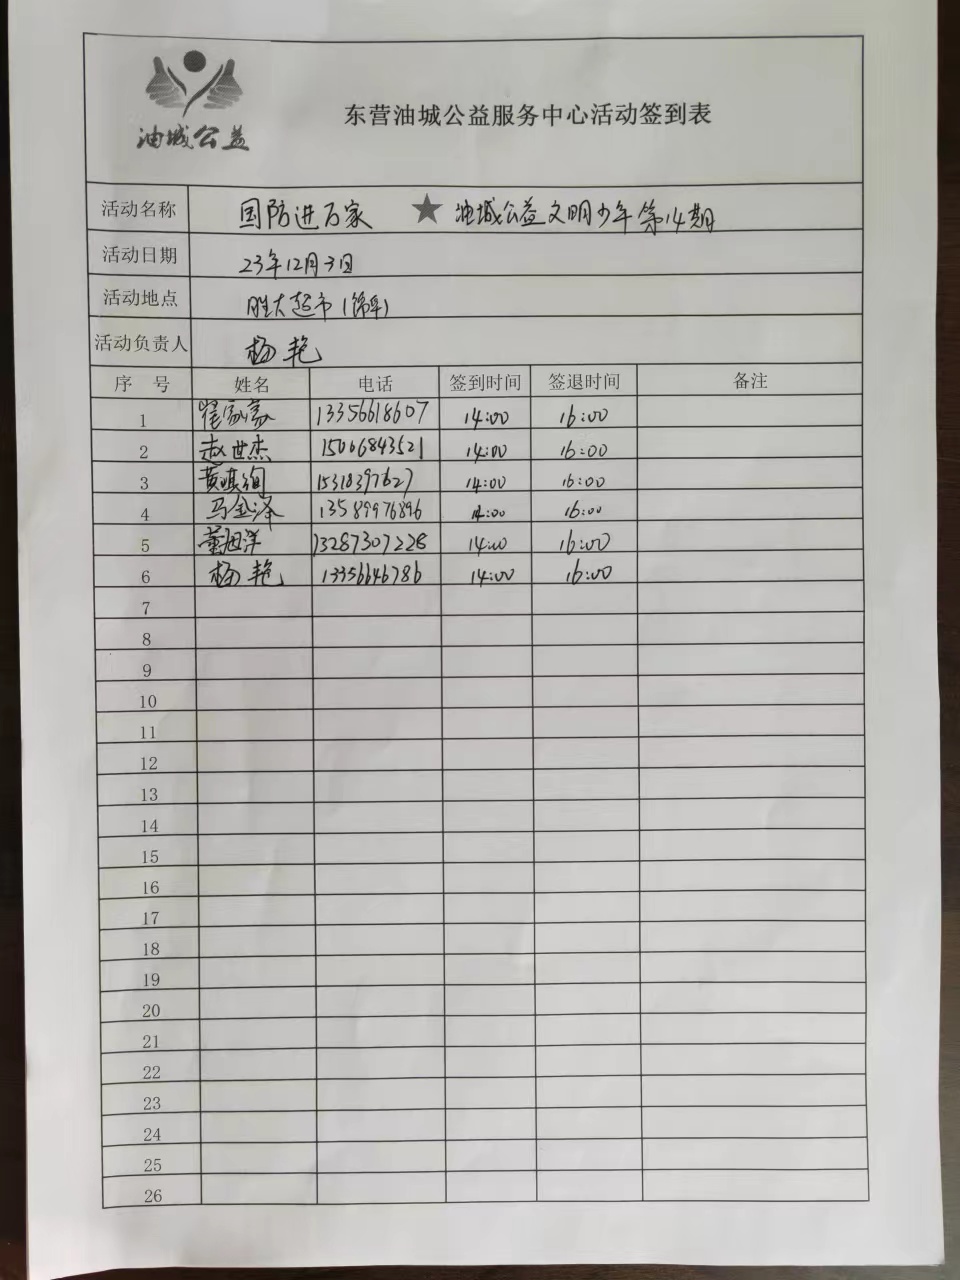 油城公益
东营油城公益服务中心活动签到表
活动名称 国防进万家 ★ 油城公益文明少年第14期
活动日期 23年12月3日
活动地点 胜大超市(锦华)
活动负责人 杨艳
序 号 姓名 电话 签到时间 签退时间 备注
1 13356618607 14:00 16:00
2 赵世杰 15066843521 14:00 16:00
3 黄淇询 15310397627 14:00 16:00
4 马金泽 13589976896 14:00 16:00
5 董旭洋 13287307228 14:00 16:00
6 杨艳 13356646786 14:00 16:00
7
8
9
10
11
12
13
14
15
16
17
18
19
20
21
22
23
24
25
26